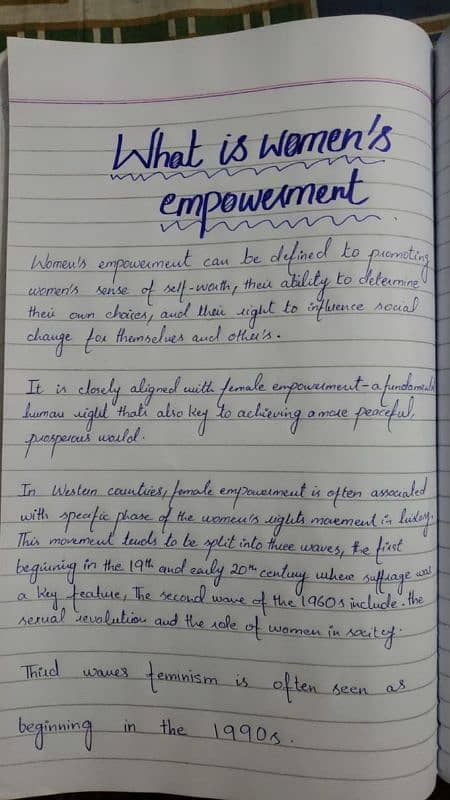 What is women's
empowerment
Women's empowerment can be defined to promoting
women's sense of self-worth, their ability to determine
their own choices, and their right to influence social
change for themselves and other's.
It is closely aligned with female empowerment-a fundamental
human right that's also key to achieving a more peaceful,
prosperous world.
In Western countries, female empowerment is often associated
with specific phase of the women's rights movement in history.
This movement tends to be split into three waves, the first
beginning in the 19th and early 20th century where suffrage was
a key feature, The second wave of the 1960s include. the
sexual revolution and the role of women in socitey.
Third waves feminism is often seen as
beginning in the 1990s.